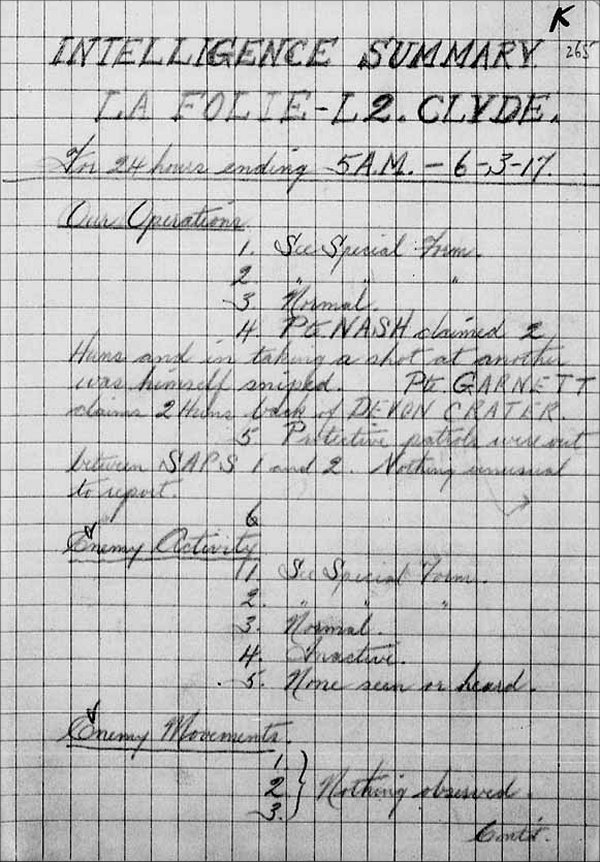 K
265
INTELLIGENCE SUMMARY
LA FOLIE - L2. CLYDE.
For 24 hours ending 5 A.M. - 6-3-17.
Our Operations
1. See Special Form.
2 " " "
3 Normal.
4 Pte NASH claimed 2
Huns and in taking a shot at another
was himself sniped. Pte GARNETT
claims 2 Huns back of DEVON CRATER.
5. Protective patrols were out
between SAPS 1 and 2. Nothing unusual
to report.
6
Enemy Activity
1. See Special Form.
2. " " "
3. Normal.
4. Inactive.
5. None seen or heard.
Enemy Movements.
1.
2 } Nothing observed.
3.
Cont'd.